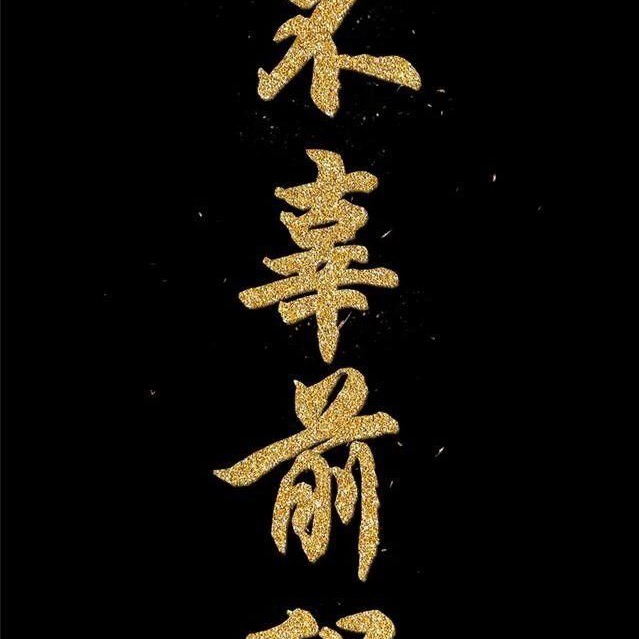 不
辜
前